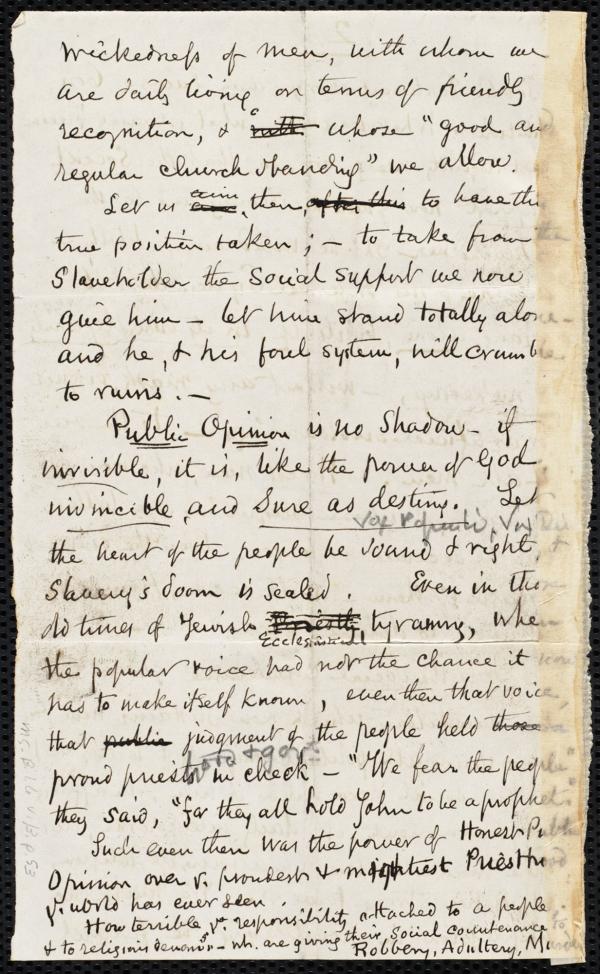 wickedness of men, with whom we
are daily living on terms of friendly
recognition, & whose "good and
regular church standing" we allow.
Let us aim, then, after this to have the
true position taken; – to take from the
Slaveholder the Social support we now
give him – let him stand totally alone –
and he, & his foul system, will crumble
to ruins. –
Public Opinion is no Shadow – if
invisible, it is, like the power of God
invincible, and Sure as destiny. Let
Vox Populi, Vox Dei
the heart of the people be Sound & right, &
Slavery's doom is sealed. Even in those
old times of Jewish Priestly tyranny, when
Ecclesiastical
the popular voice had not the chance it now
has to make itself known, even then that voice,
that public judgment of the people held those
proud priests in check – "We fear the people"
they said, "for they all hold John to be a prophet."
Such even then was the power of Honest Public
Opinion over ye. proudest & mightiest Priesthood
ye. world has ever seen.
How terrible ye. responsibility attached to a people
& to religious – wh. are giving their Social Countenance to
Robbery, Adultery, Murder
MS.B.6 v.1 P 53